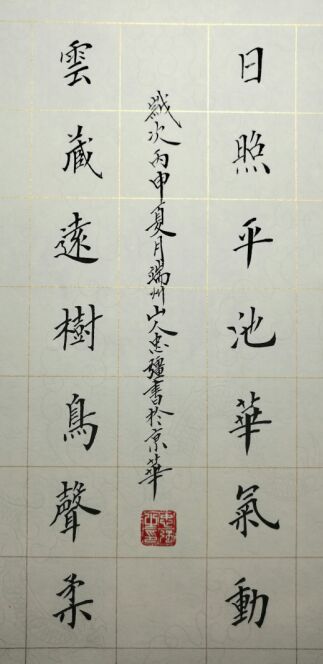 日照平池華氣動
雲藏遠樹鳥聲柔
歲次丙申夏月端州山人忠彊書於京華